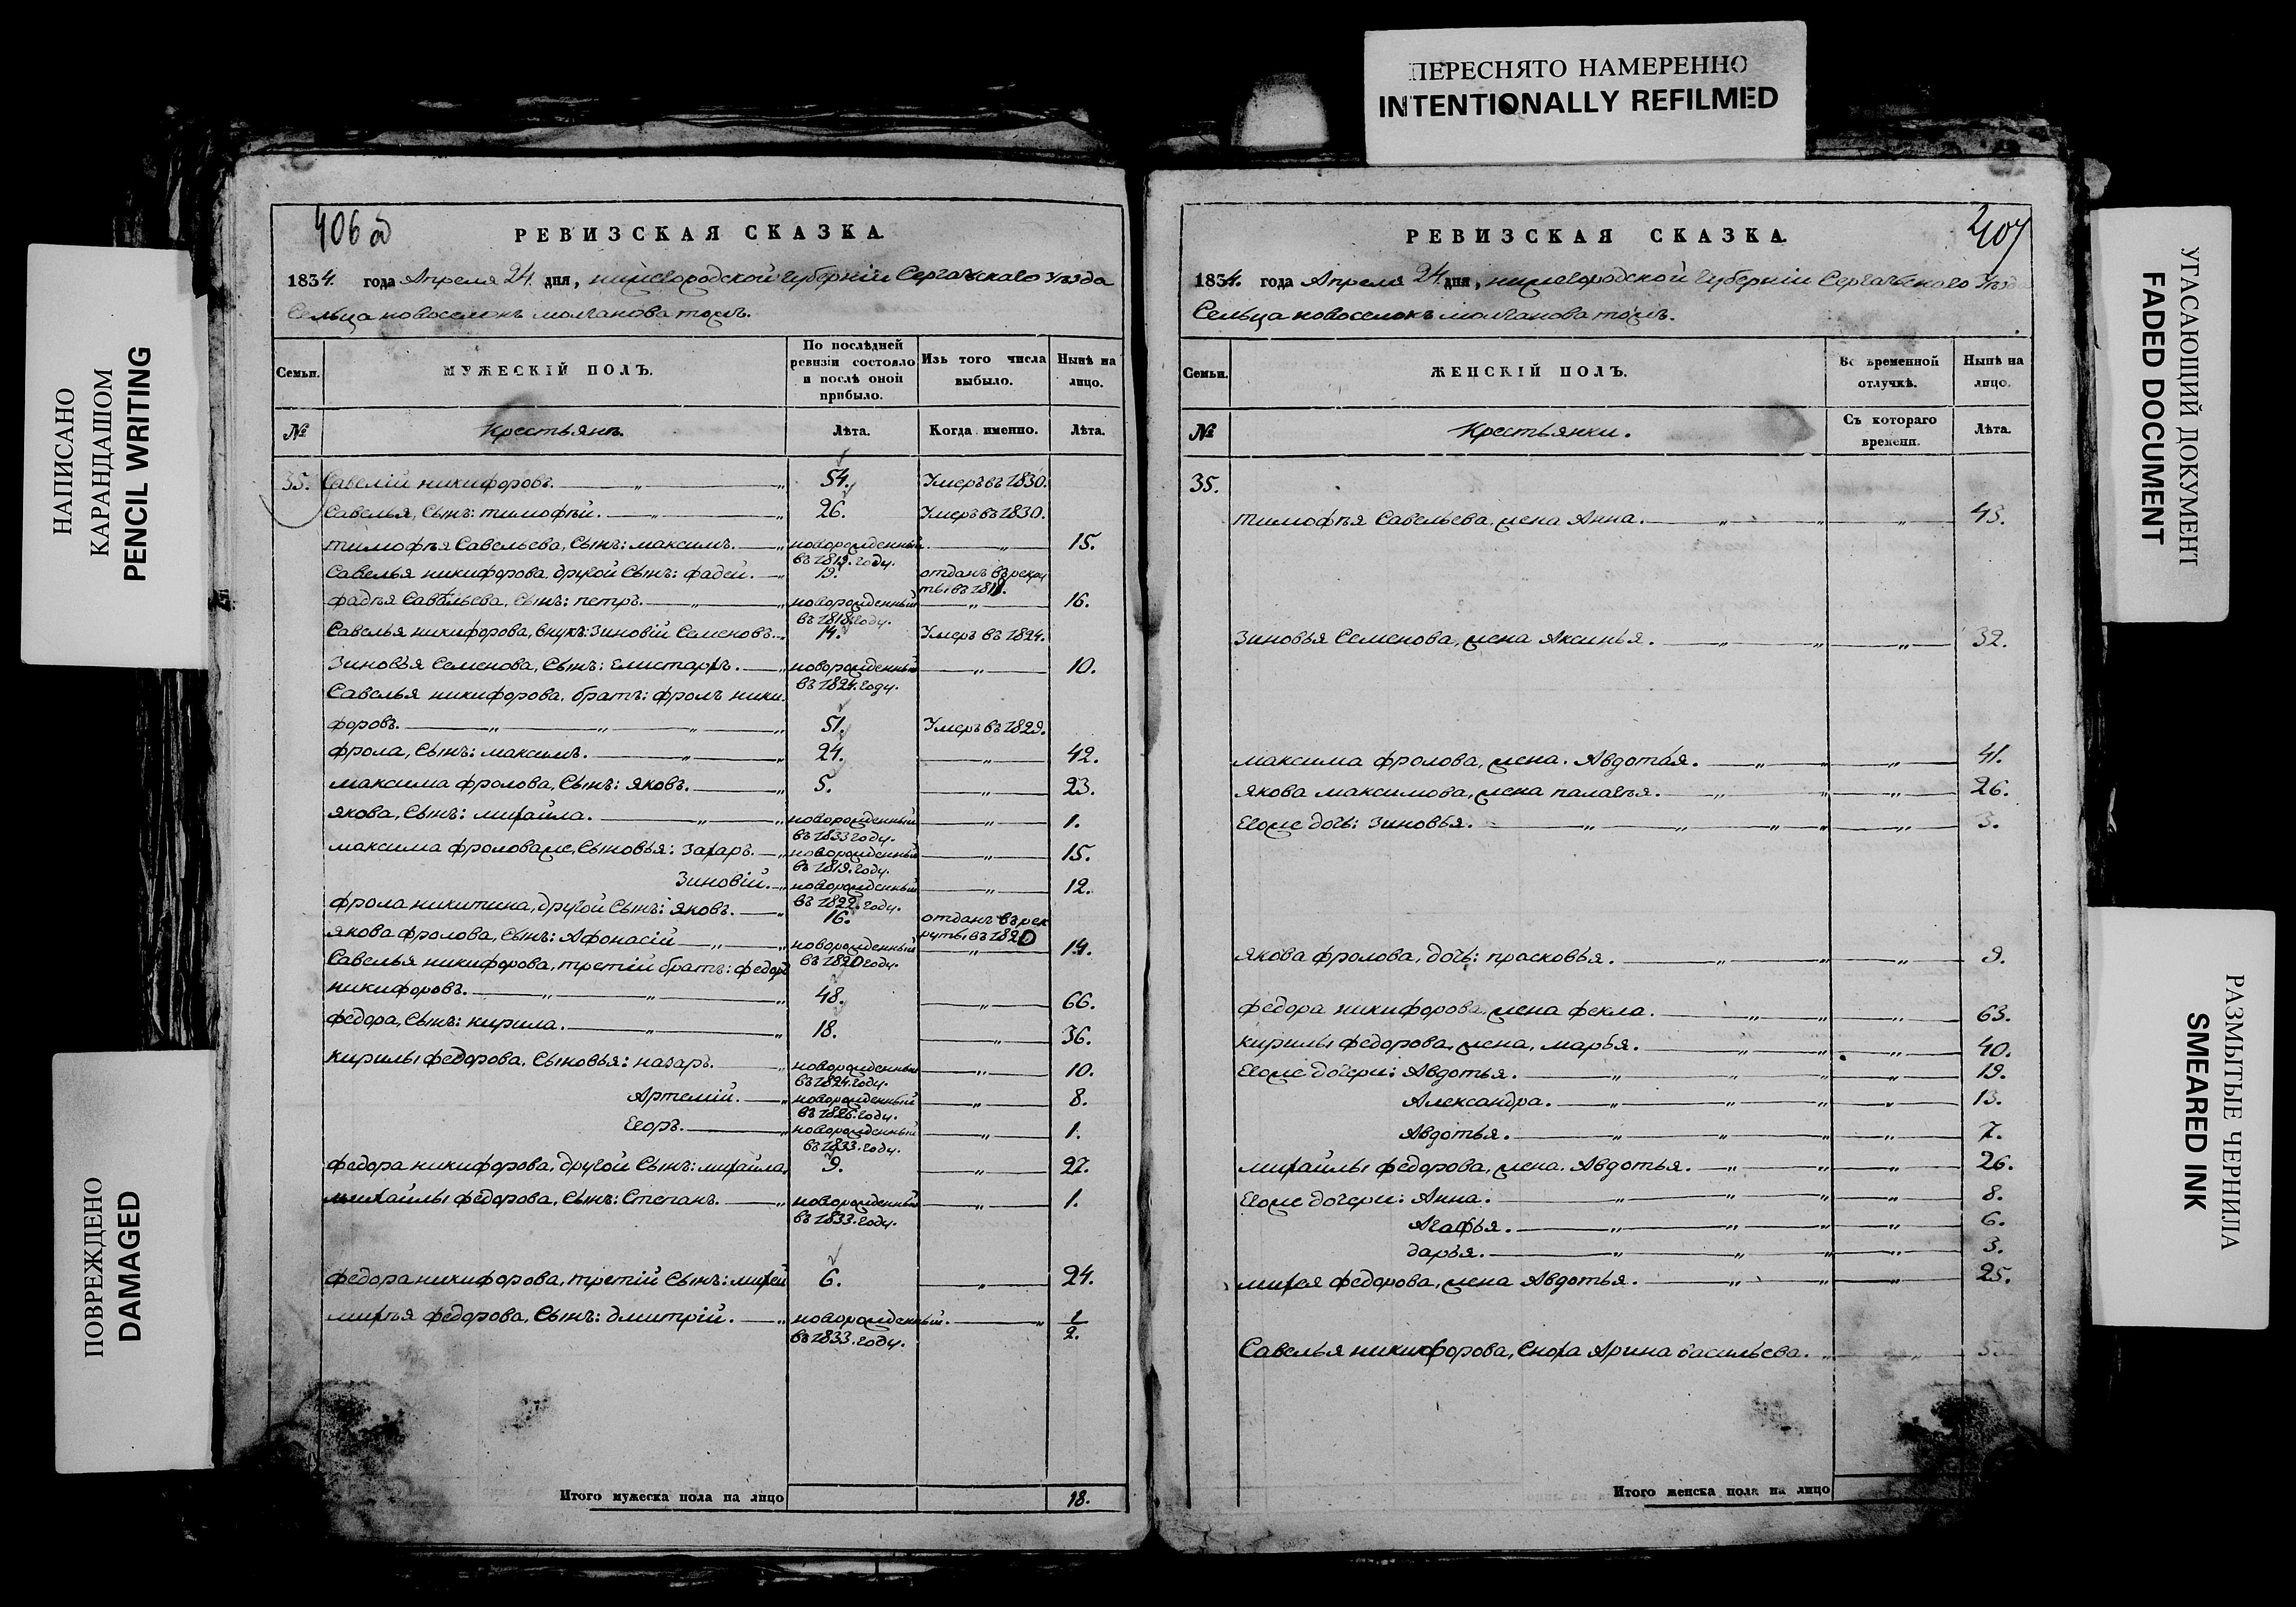 ПЕРЕСНЯТО НАМЕРЕННО
INTENTIONALLY REFILMED
НАПИСАНО
КАРАНДАШОМ
PENCIL WRITING
ПОВРЕЖДЕНО
DAMAGED
406 об
РЕВИЗСКАЯ СКАЗКА.
1834. года Апреля 24. дня, нижегородской губерніи Сергачьскаго Уѣзда
Сельца новоселокъ молчанова тожъ.
Семьи.
МУЖЕСКІЙ ПОЛЪ.
По послѣдней
ревизіи состояло
и послѣ оной
прибыло.
Изъ того числа
выбыло.
Нынѣ на
лицо.
№
Крестьянъ.
Лѣта.
Когда именно.
Лѣта.
35. Савелій никифоровъ. 54. Умеръ въ 1830.
Савелья, Сынъ: тимофѣй. 26. Умеръ въ 1830.
тимофѣя Савельева, Сынъ: максимъ. новорожденный 15.
въ 1819. году.
Савелья никифорова, другой Сынъ: фадей. 19. отданъ въ рекру
ты въ 1818.
фадѣя Савельева, Сынъ: петръ. новорожденный 16.
въ 1818. году.
Савелья никифорова, внукъ: Зиновій Семеновъ. 14. Умеръ въ 1824.
Зиновья Семенова, Сынъ: Елистаръ. новорожденный 10.
въ 1824. году.
Савелья никифорова, братъ: фролъ ники
форовъ. 51. Умеръ въ 1829.
фрола, Сынъ: максимъ. 24. 42.
максима фролова, Сынъ: яковъ. 5. 23.
якова, Сынъ: михайла. новорожденный 1.
въ 1833 году.
максима фроловаже, Сыновья: Захаръ. новорожденный 15.
въ 1819. году.
Зиновій. новорожденный 12.
въ 1822. году.
фрола никитина, другой Сынъ: яковъ. 16. отданъ въ рек
руты въ 1820
якова фролова, Сынъ: Афонасій новорожденный 14.
въ 1820 году.
Савелья никифорова, третій братъ: федоръ
никифоровъ. 48. 66.
федора, Сынъ: кирила. 18. 36.
кирилы федорова, Сыновья: назаръ. новорожденный 10.
въ 1824. году.
Артемій. новорожденный 8.
въ 1826. году.
Егоръ. новорожденный 1.
въ 1833. году.
федора никифорова, другой Сынъ: михайла. 9. 27.
михайлы федорова, Сынъ: Степанъ. новорожденный 1.
въ 1833. году.
федора никифорова, третій Сынъ: михей 6. 24.
михѣя федорова, Сынъ: дмитрій. новорожденный. 1/2.
въ 1833. году.
Итого мужеска пола на лицо 18.
407
РЕВИЗСКАЯ СКАЗКА.
1834. года Апреля 24. дня, нижегородской губерніи Сергачьскаго Уѣзда
Сельца новоселокъ молчанова тожъ.
Семьи.
ЖЕНСКІЙ ПОЛЪ.
Во временной
отлучкѣ.
Нынѣ на
лицо.
№
Крестьянки.
Съ котораго
времени.
Лѣта.
35.
тимофѣя Савельева, жена Анна. 43.
Зиновья Семенова, жена Аксинья. 32.
максима фролова, жена. Авдотья. 41.
якова максимова, жена палагѣя. 26.
Егоже дочь: Зиновья. 3.
якова фролова, дочь: прасковья. 9.
федора никифорова, жена фекла. 63.
кирилы федорова, жена, марья. 40.
Егоже дочери: Авдотья. 19.
Александра. 13.
Авдотья. 7.
михайлы федорова, жена. Авдотья. 26.
Егоже дочери: Анна. 8.
Агафья. 6.
дарья. 3.
михея федорова, жена Авдотья. 25.
Савелья никифорова, Сноха Арина васильева.
Итого женска пола на лицо
УГАСАЮЩИЙ ДОКУМЕНТ
FADED DOCUMENT
РАЗМЫТЫЕ ЧЕРНИЛА
SMEARED INK